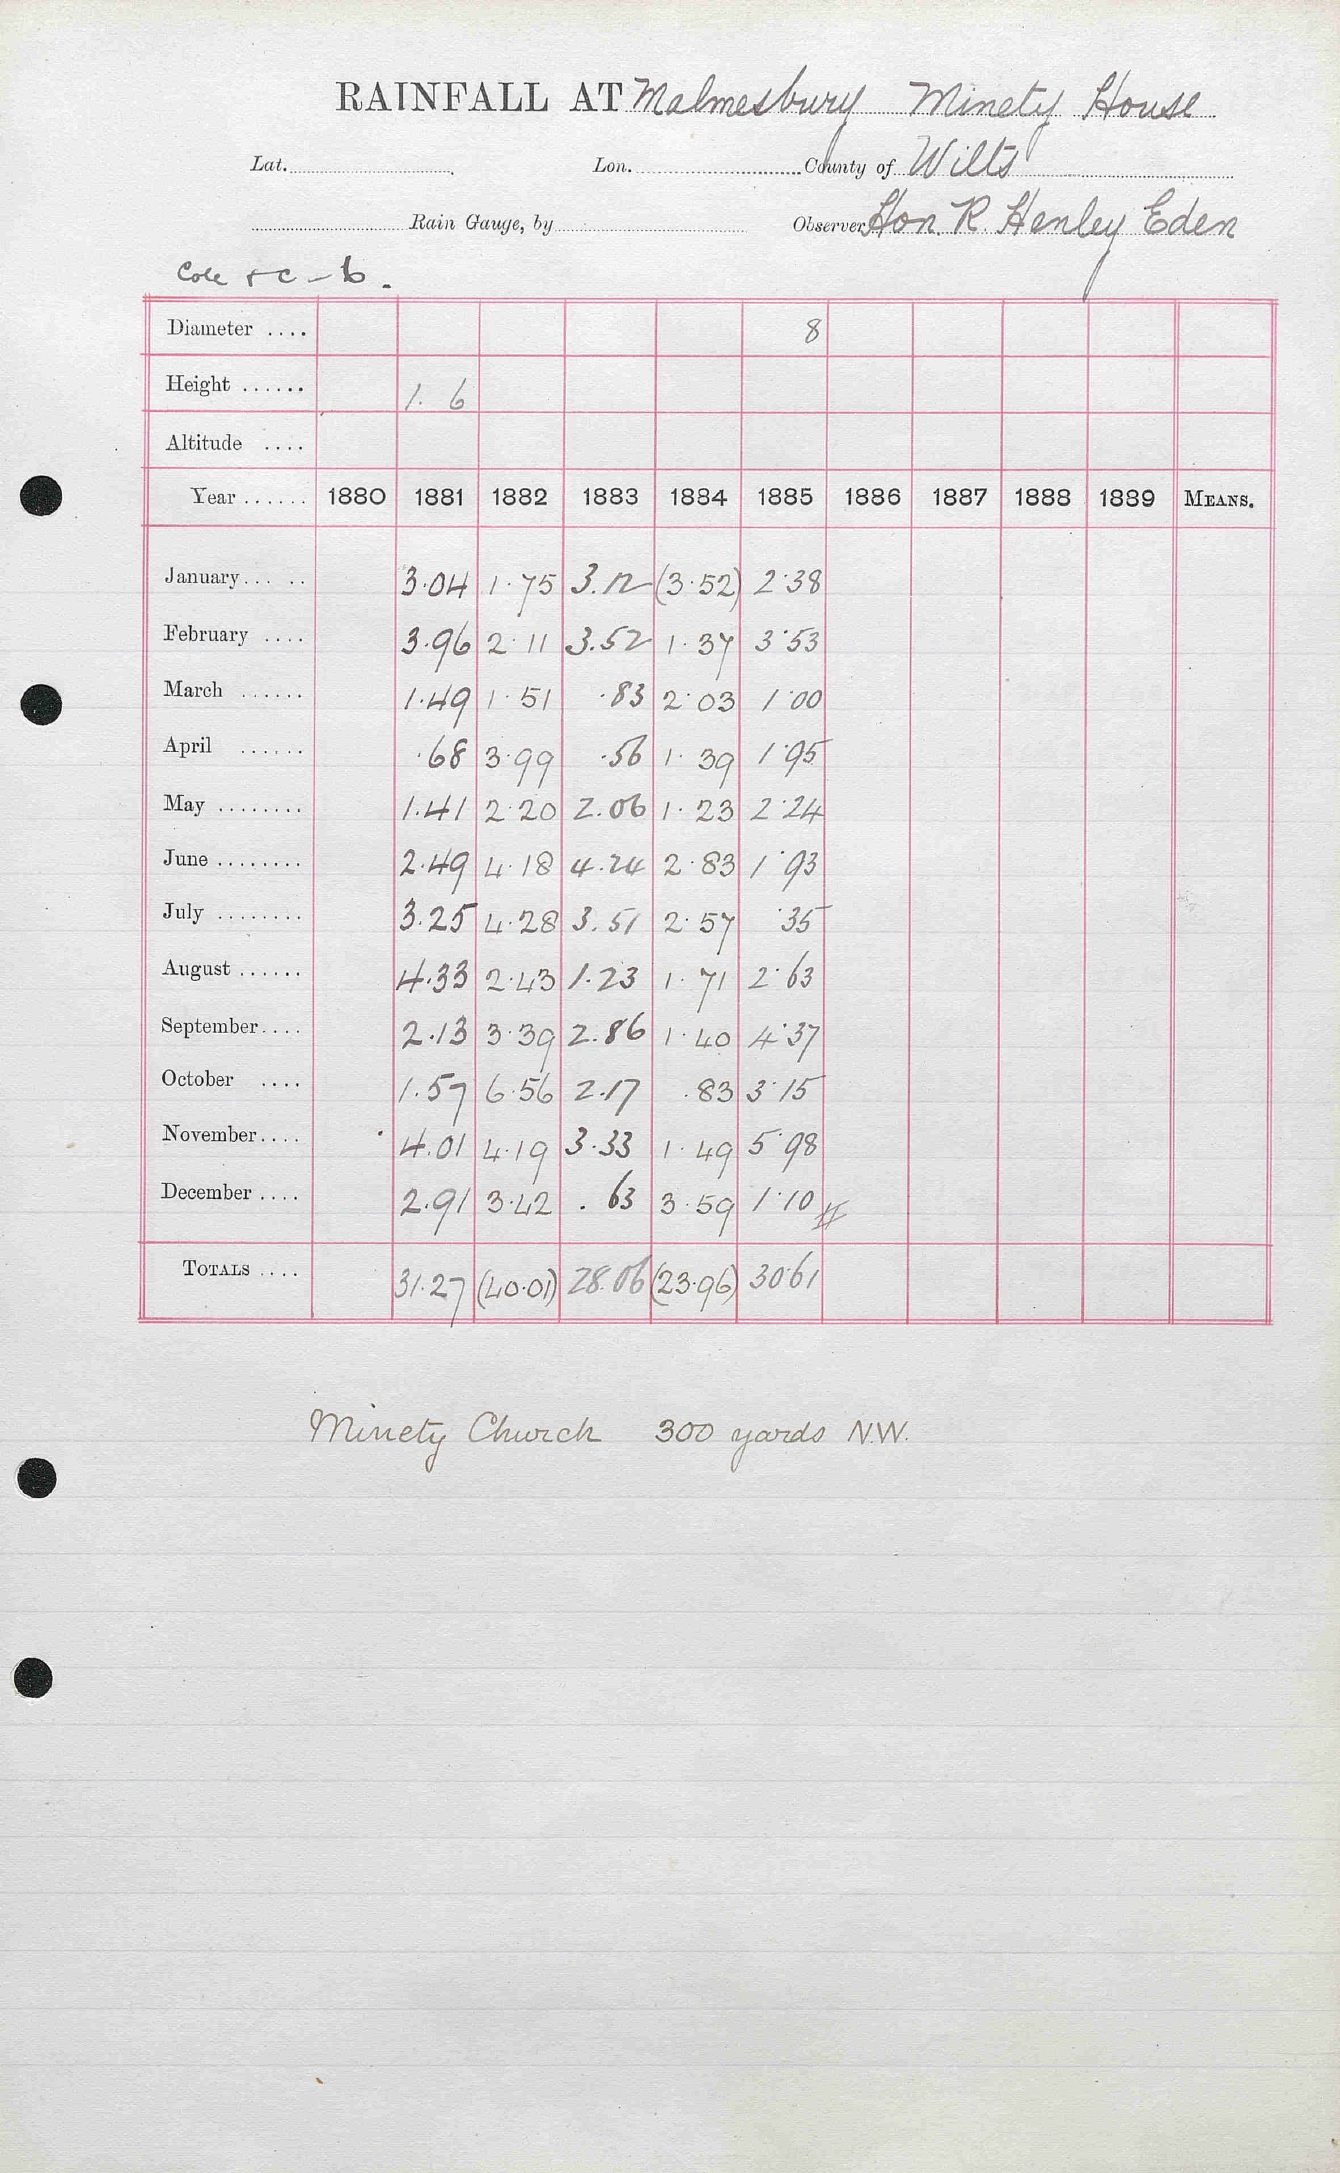 RAINFALL AT Malmesbury Minety House
Lat. Lon. County of Wilts
Rain Gauge, by Observer Hon. R. Henley Eden
Diameter .... 8
Height ...... 1. 6
Altitude ....
Year ...... 1880 1881 1882 1883 1884 1885 1886 1887 1888 1889 MEANS.
January... .. 3.04 1.75 3.12 (3.52) 2.38
February .... 3.96 2.11 3.52 1.37 3.53
March ...... 1.49 1.51 .83 2.03 1.00
April ...... .68 3.99 .56 1.39 1.95
May ........ 1.41 2.20 2.06 1.23 2.24
June ........ 2.49 4.18 4.24 2.83 1.93
July ........ 3.25 4.28 3.51 2.57 .35
August ...... 4.33 2.43 1.23 1.71 2.63
September.... 2.13 3.39 2.86 1.40 4.37
October .... 1.57 6.56 2.17 .83 3.15
November.... 4.01 4.19 3.33 1.49 5.98
December .... 2.91 3.42 .63 3.59 1.10
TOTALS .... 31.27 (40.01) 28.06 (23.96) 30.61
Minety Church 300 yards N.W.